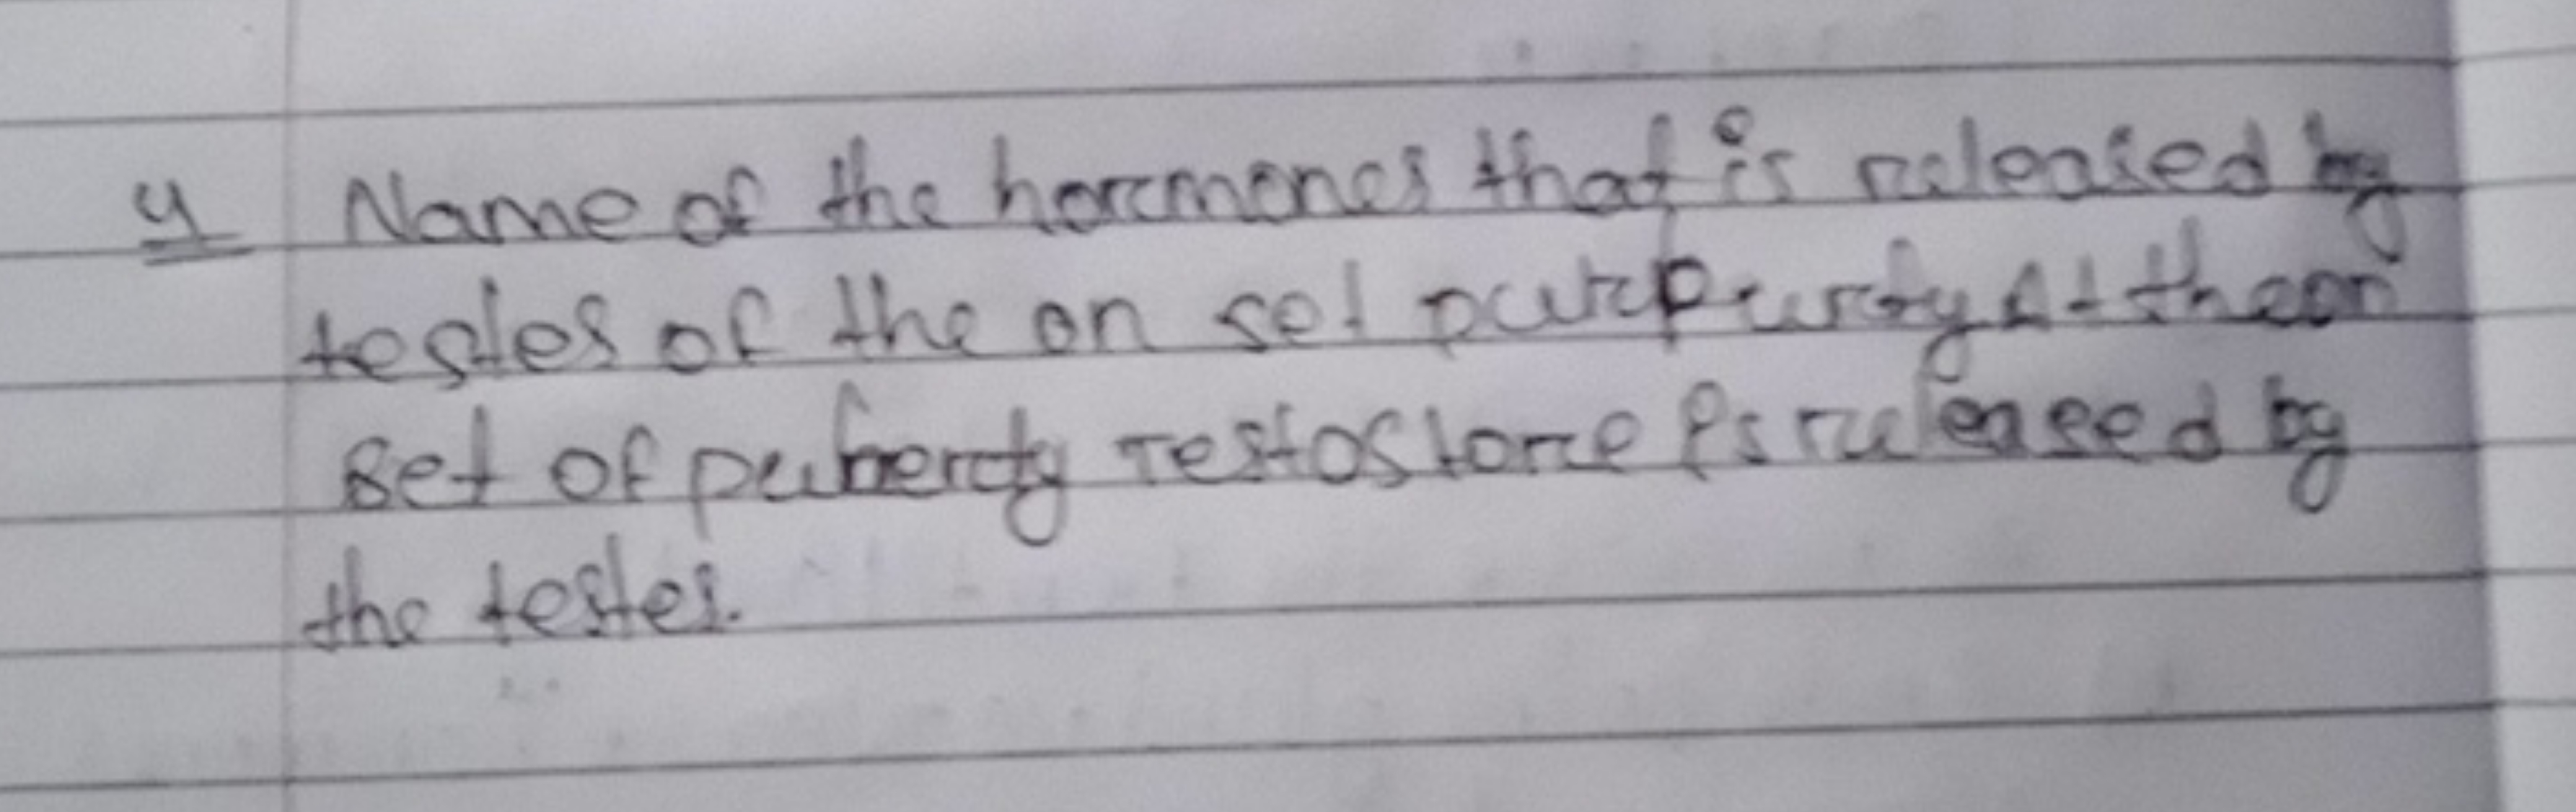 4 Name of the hormones that is released by
testes of the on set purpurty At the on
set of puberty Testostore is released by
the testes.